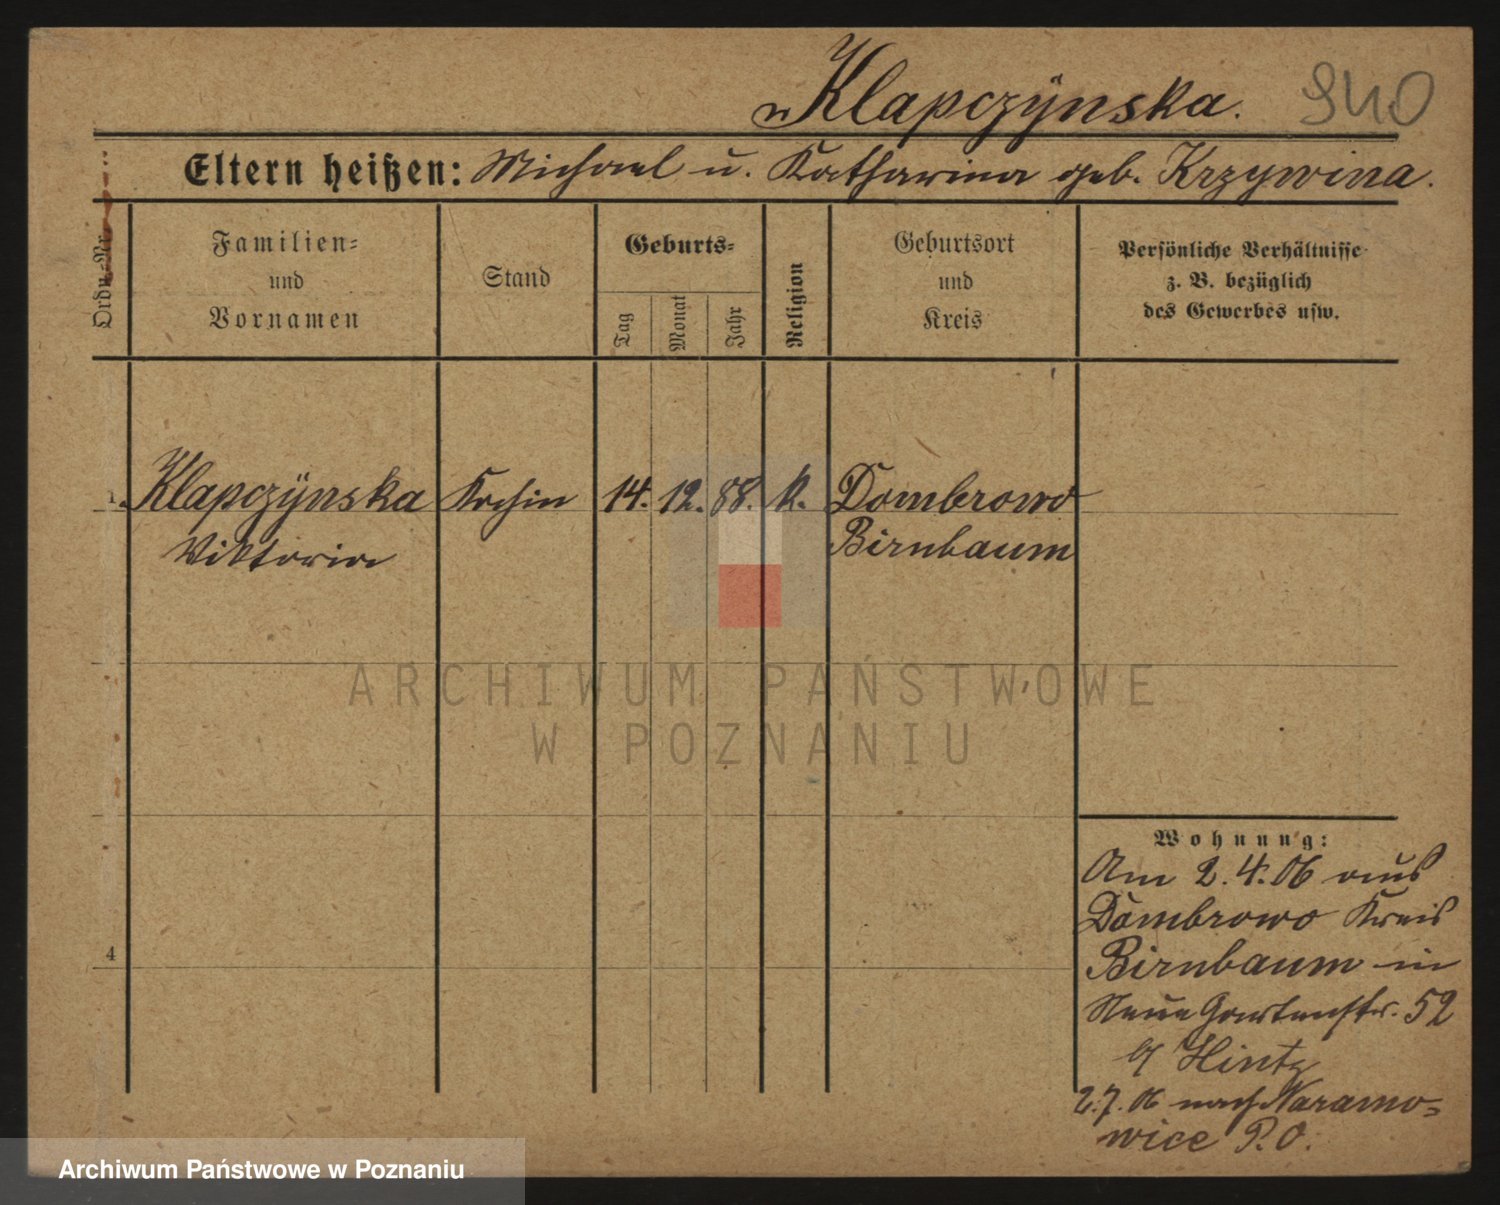 Klapczÿnska. 940
Eltern heißen: Michael u. Katharina geb. Krzywina.
Ordn.-Nr.
Familien-
und
Vornamen
Stand
Geburts-
Tag
Monat
Jahr
Religion
Geburtsort
und
Kreis
Persönliche Verhältnisse
z. B. bezüglich
des Gewerbes usw.
1. Klapczÿnska Köchin 14. 12. 88. k. Dombrowo
Viktoria Birnbaum
4
Wohnung:
Am 2.4.06 aus
Dombrowo Kreis
Birnbaum in
Neue Gartenstr. 52
b/ Hintz
2.7.06 nach Naramo-
wice P.O.
ARCHIWUM PAŃSTWOWE
W POZNANIU
Archiwum Państwowe w Poznaniu